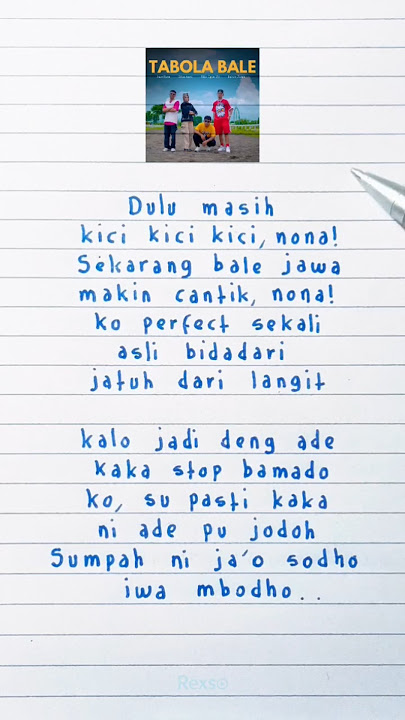 TABOLA BALE
Dulu masih
kici kici kici, nona!
Sekarang bale jawa
makin cantik, nona!
ko perfect sekali
asli bidadari
jatuh dari langit
kalo jadi deng ade
kaka stop bamado
ko, su pasti kaka
ni ade pu jodoh
Sumpah ni ja'o sodho
iwa mbodho..
Rexso